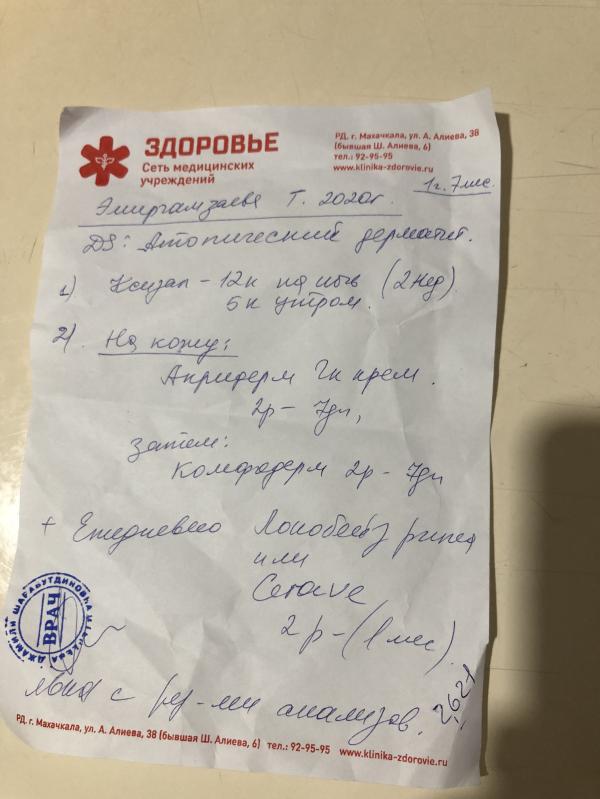 ЗДОРОВЬЕ
Сеть медицинских
учреждений
РД, г. Махачкала, ул. А. Алиева, 38
(бывшая Ш. Алиева, 6)
тел.: 92-95-95
www.klinika-zdorovie.ru
1г. 7мес.
Эмиргамзаева Т. 2020г.
DS: Атопический дерматит.
1) Ксизал - 12к на ночь (2нед).
5к утром.
2) На кожу:
Акридерм Гк крем.
2р - 7дн,
Затем:
Комфодерм 2р - 7дн
+ Ежедневно Локобейз рипеа
или
Cerave
2р - (1мес).
ВРАЧ
с рез-ми анализов.
РД, г. Махачкала, ул. А. Алиева, 38 (бывшая Ш. Алиева, 6) тел.: 92-95-95 www.klinika-zdorovie.ru